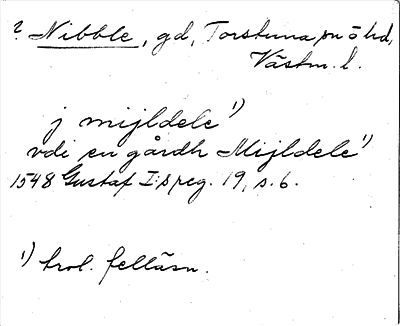 ? Nibble, gd, Torstuna sn o hd,
Västm. l.
j mijldele¹⁾
vdi en gårdh Mijldele¹⁾
1548 Gustaf I:s reg. 19, s. 6.
¹⁾ trol. felläsn.